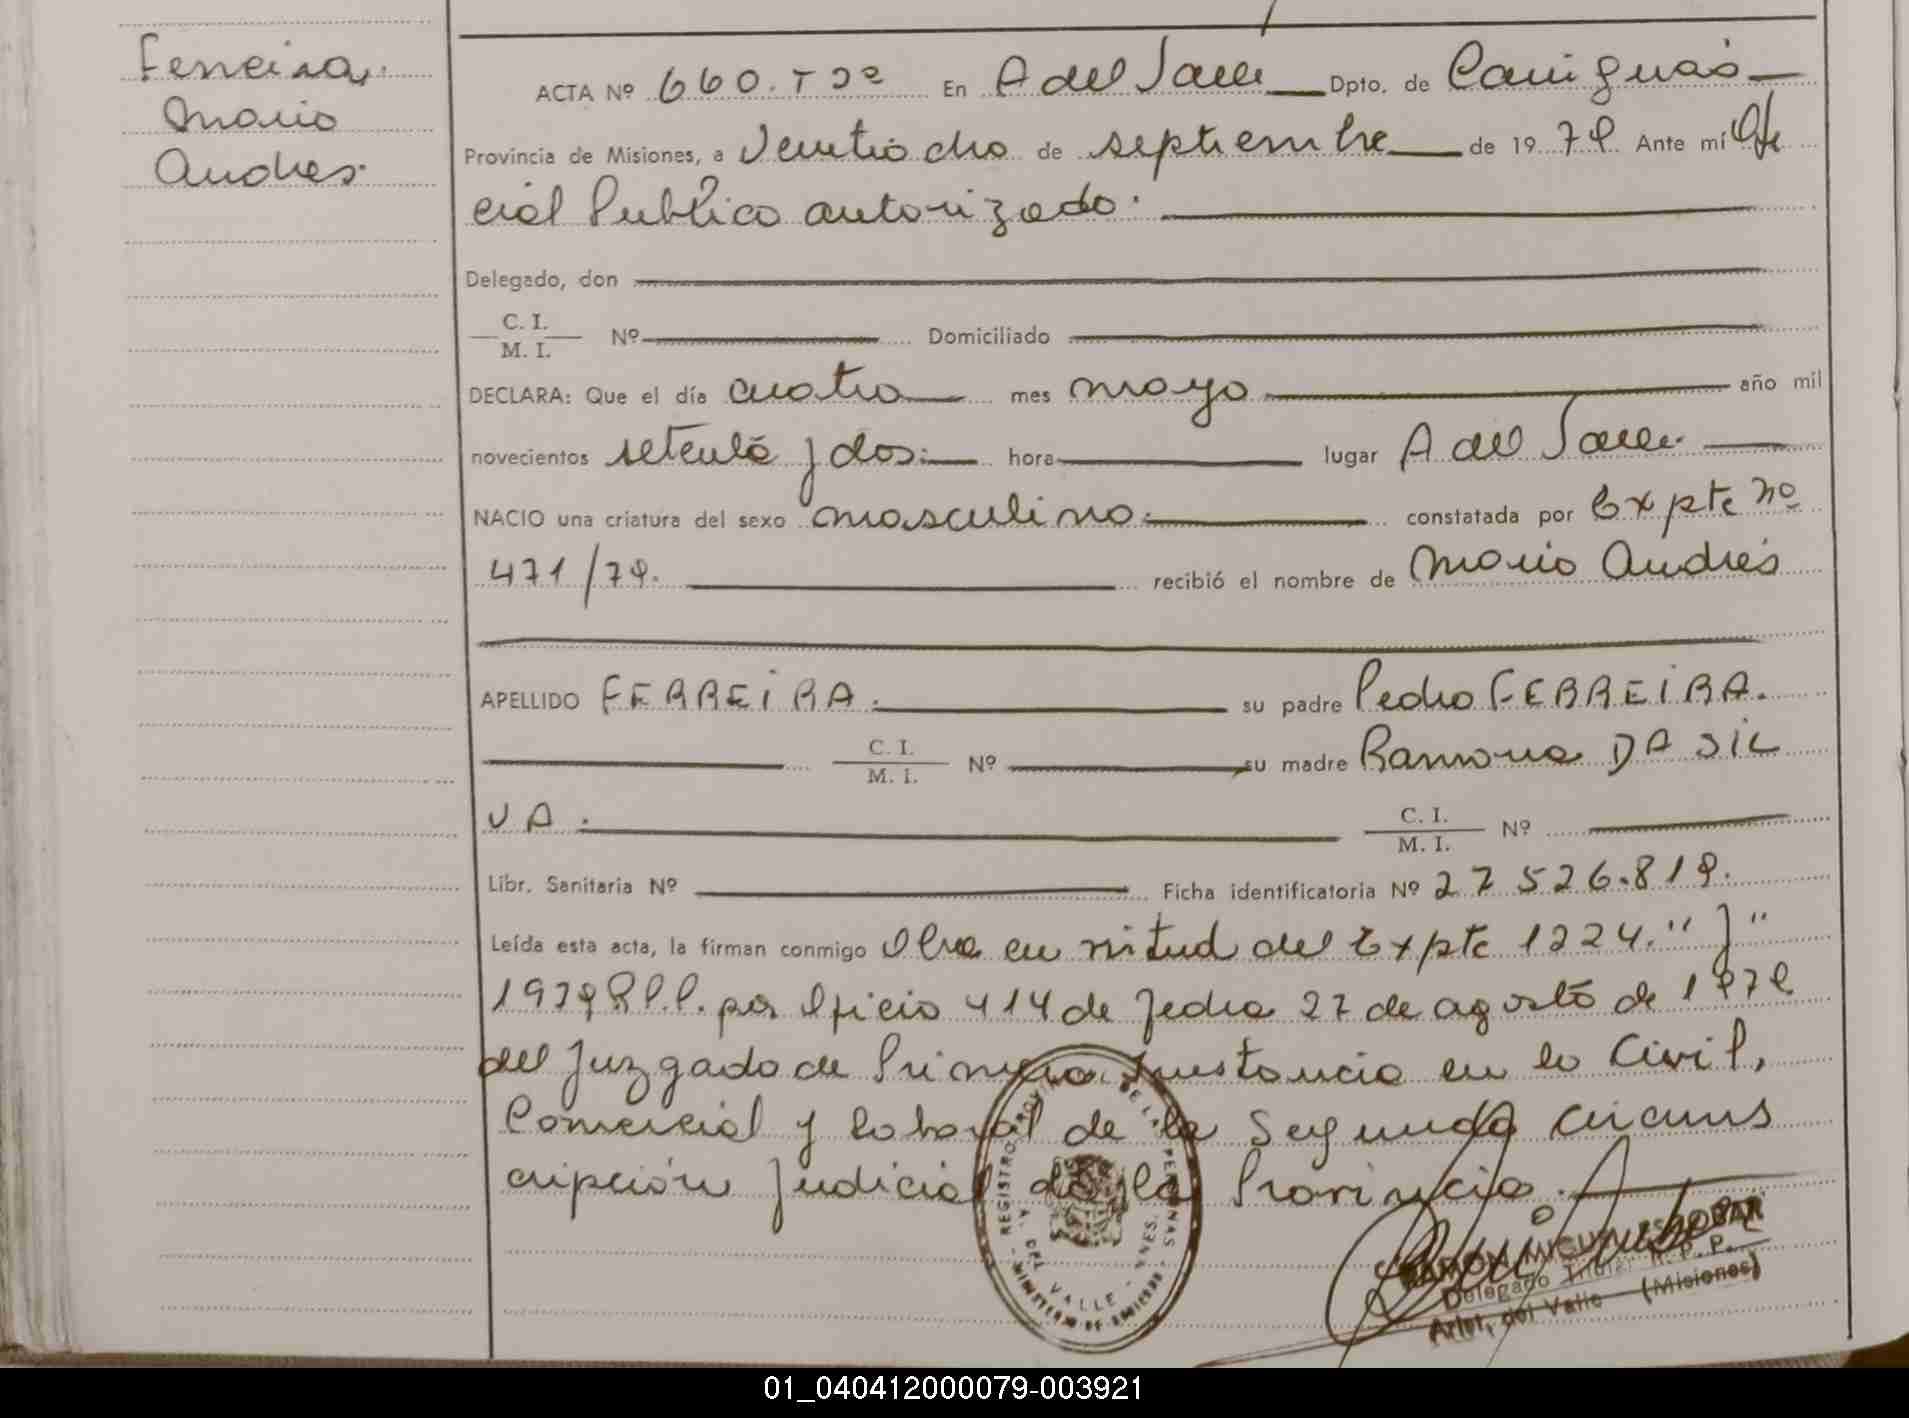 Ferreira,
Mario
Andres.
ACTA Nº 660. T 2º En A del Valle Dpto. de Cainguás
Provincia de Misiones, a Veintiocho de septiembre de 19 79 Ante mí Ofi
cial Publico autorizado.
Delegado, don
C. I.
M. I. Nº Domiciliado
DECLARA: Que el día cuatro mes mayo año mil
novecientos setenta y dos. hora lugar A del Valle.
NACIO una criatura del sexo masculino. constatada por Expte nº
471/79. recibió el nombre de Mario Andrés
APELLIDO FERREIRA. su padre Pedro FERREIRA.
C. I.
M. I. Nº su madre Ramona DA SIL
VA. C. I.
M. I. Nº
Libr. Sanitaria Nº Ficha identificatoria Nº 27 526.819.
Leída esta acta, la firman conmigo Obra en virtud del Expte 1224. "J"
1979 R.P.P. por Oficio 414 de fecha 27 de agosto de 1979
del Juzgado de Primera Instancia en lo Civil,
Comercial y Laboral de la Segunda Circuns
cripción Judicial de la Provincia.
REGISTRO PROVINCIAL DE LAS PERSONAS
A. DEL VALLE - MNES.
MINISTERIO DE GOBIERNO
RAMON MIGUEL ESCOBAR
Delegado Titular R. P. P.
Arist. del Valle (Misiones)
01_040412000079-003921